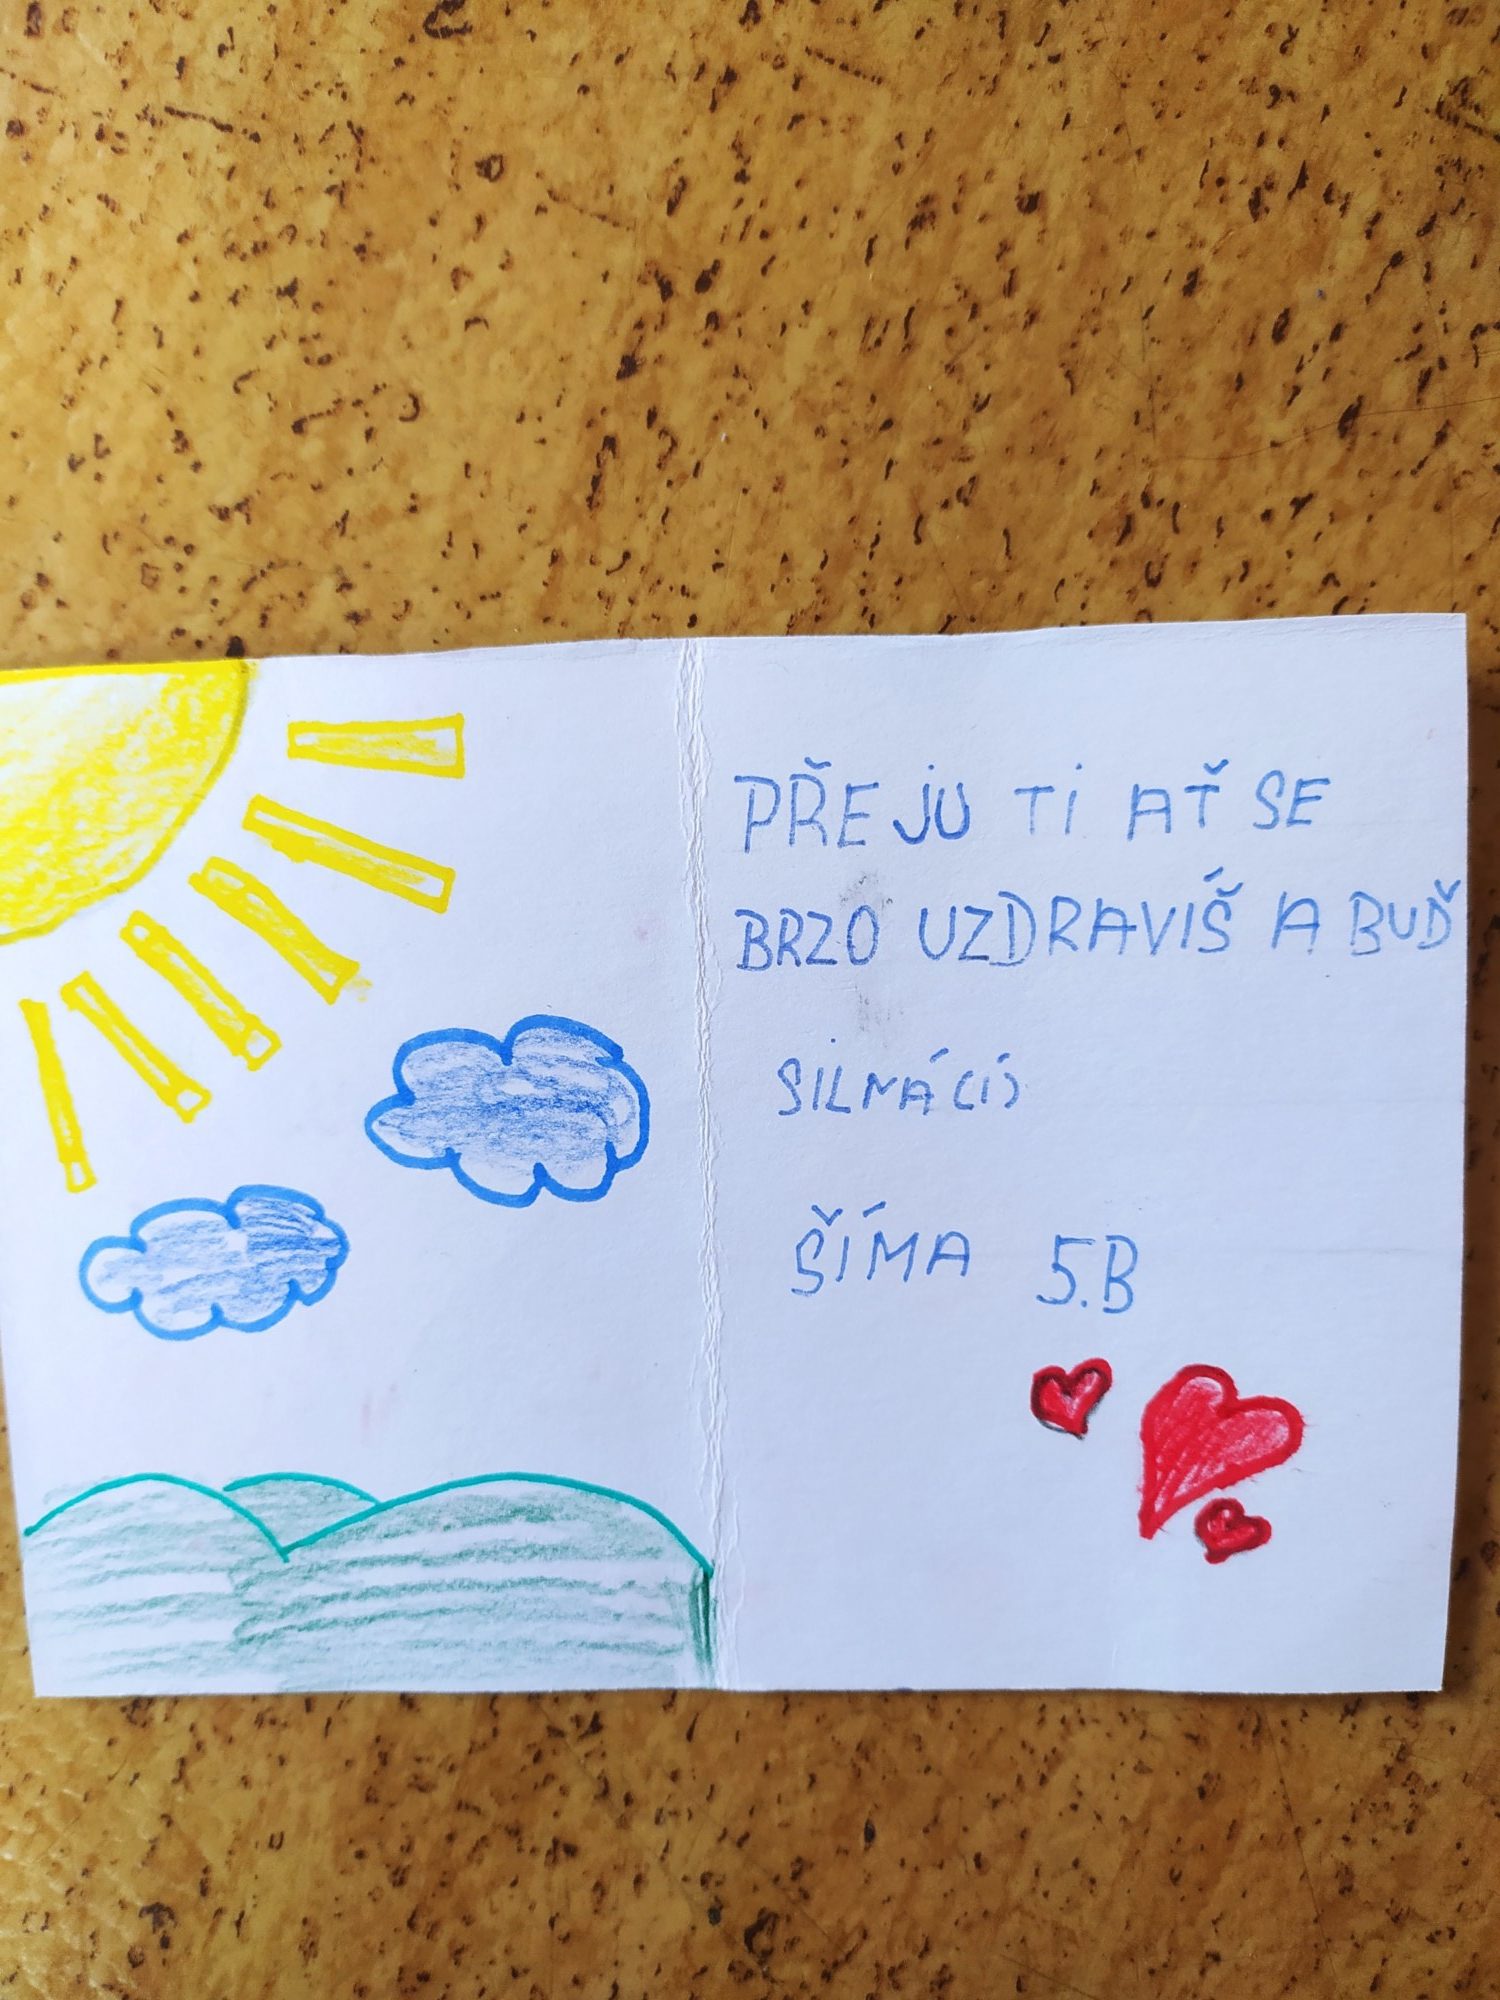 PŘEJU TI AŤ SE
BRZO UZDRAVÍŠ A BUĎ
SILNÁ(Í)
ŠÍMA 5.B